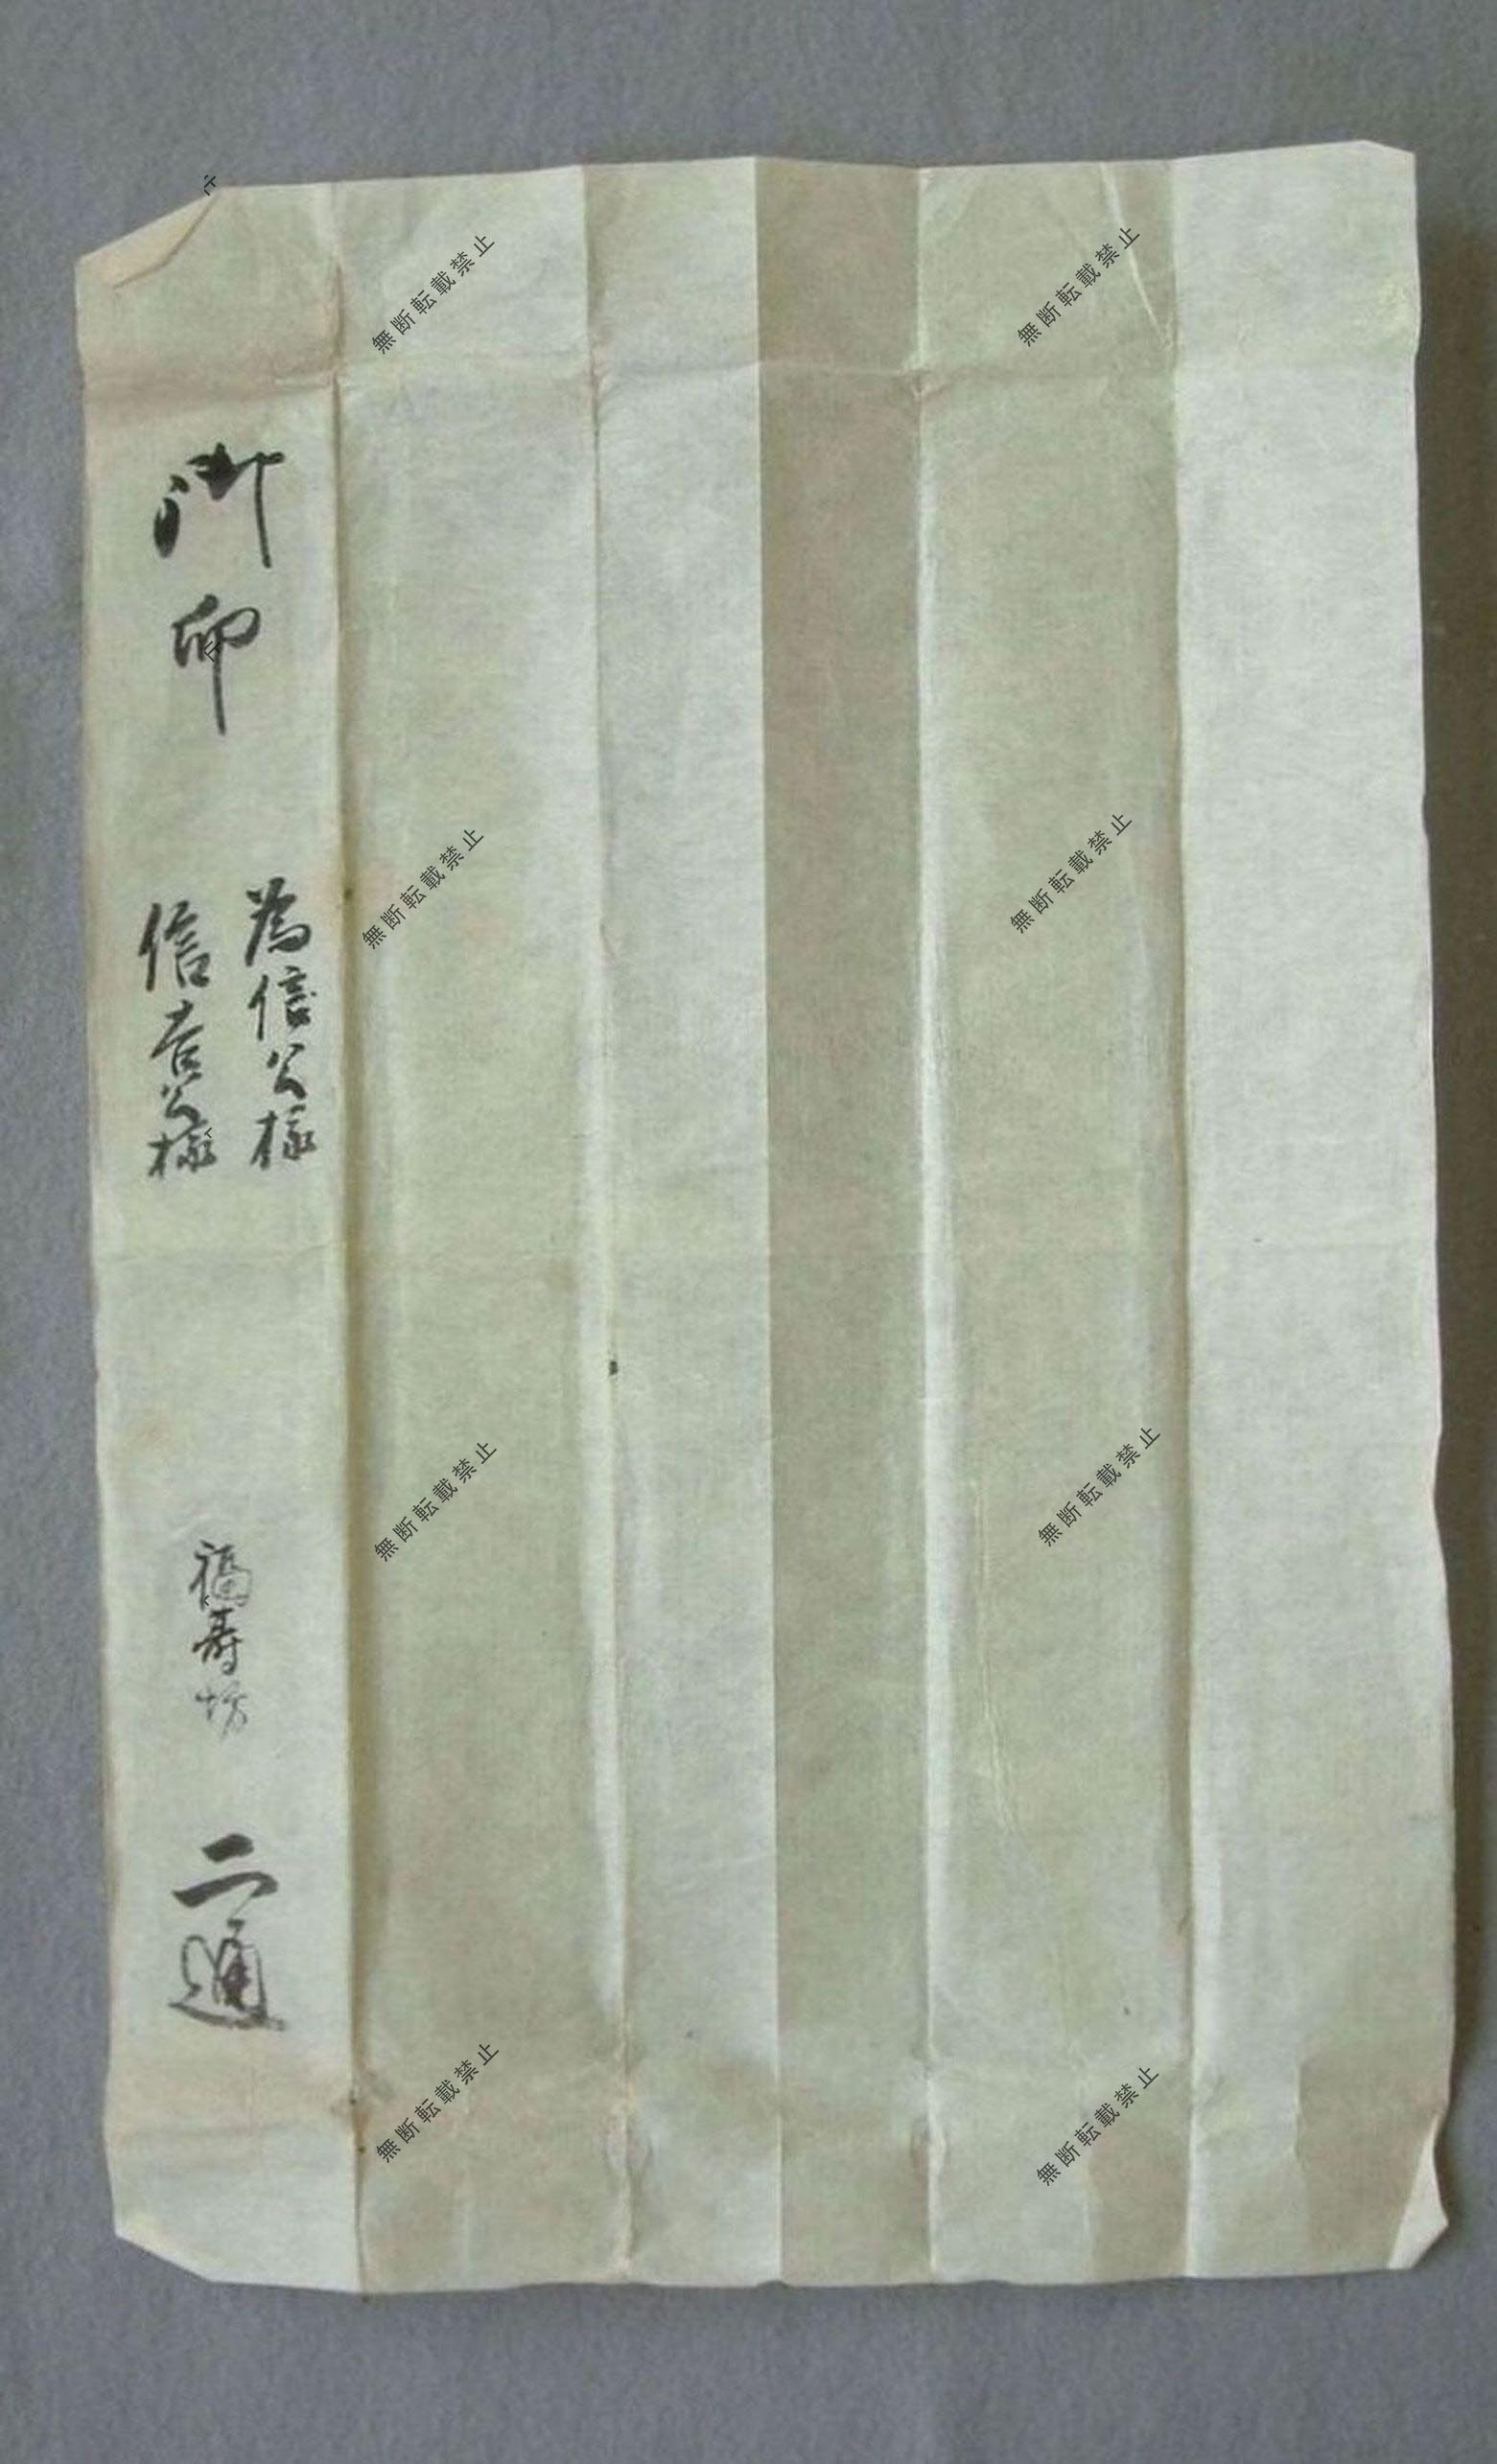 御印
為信公様
信吉公様
福寿坊
二通
無断転載禁止
無断転載禁止
無断転載禁止
無断転載禁止
無断転載禁止
無断転載禁止
無断転載禁止
無断転載禁止